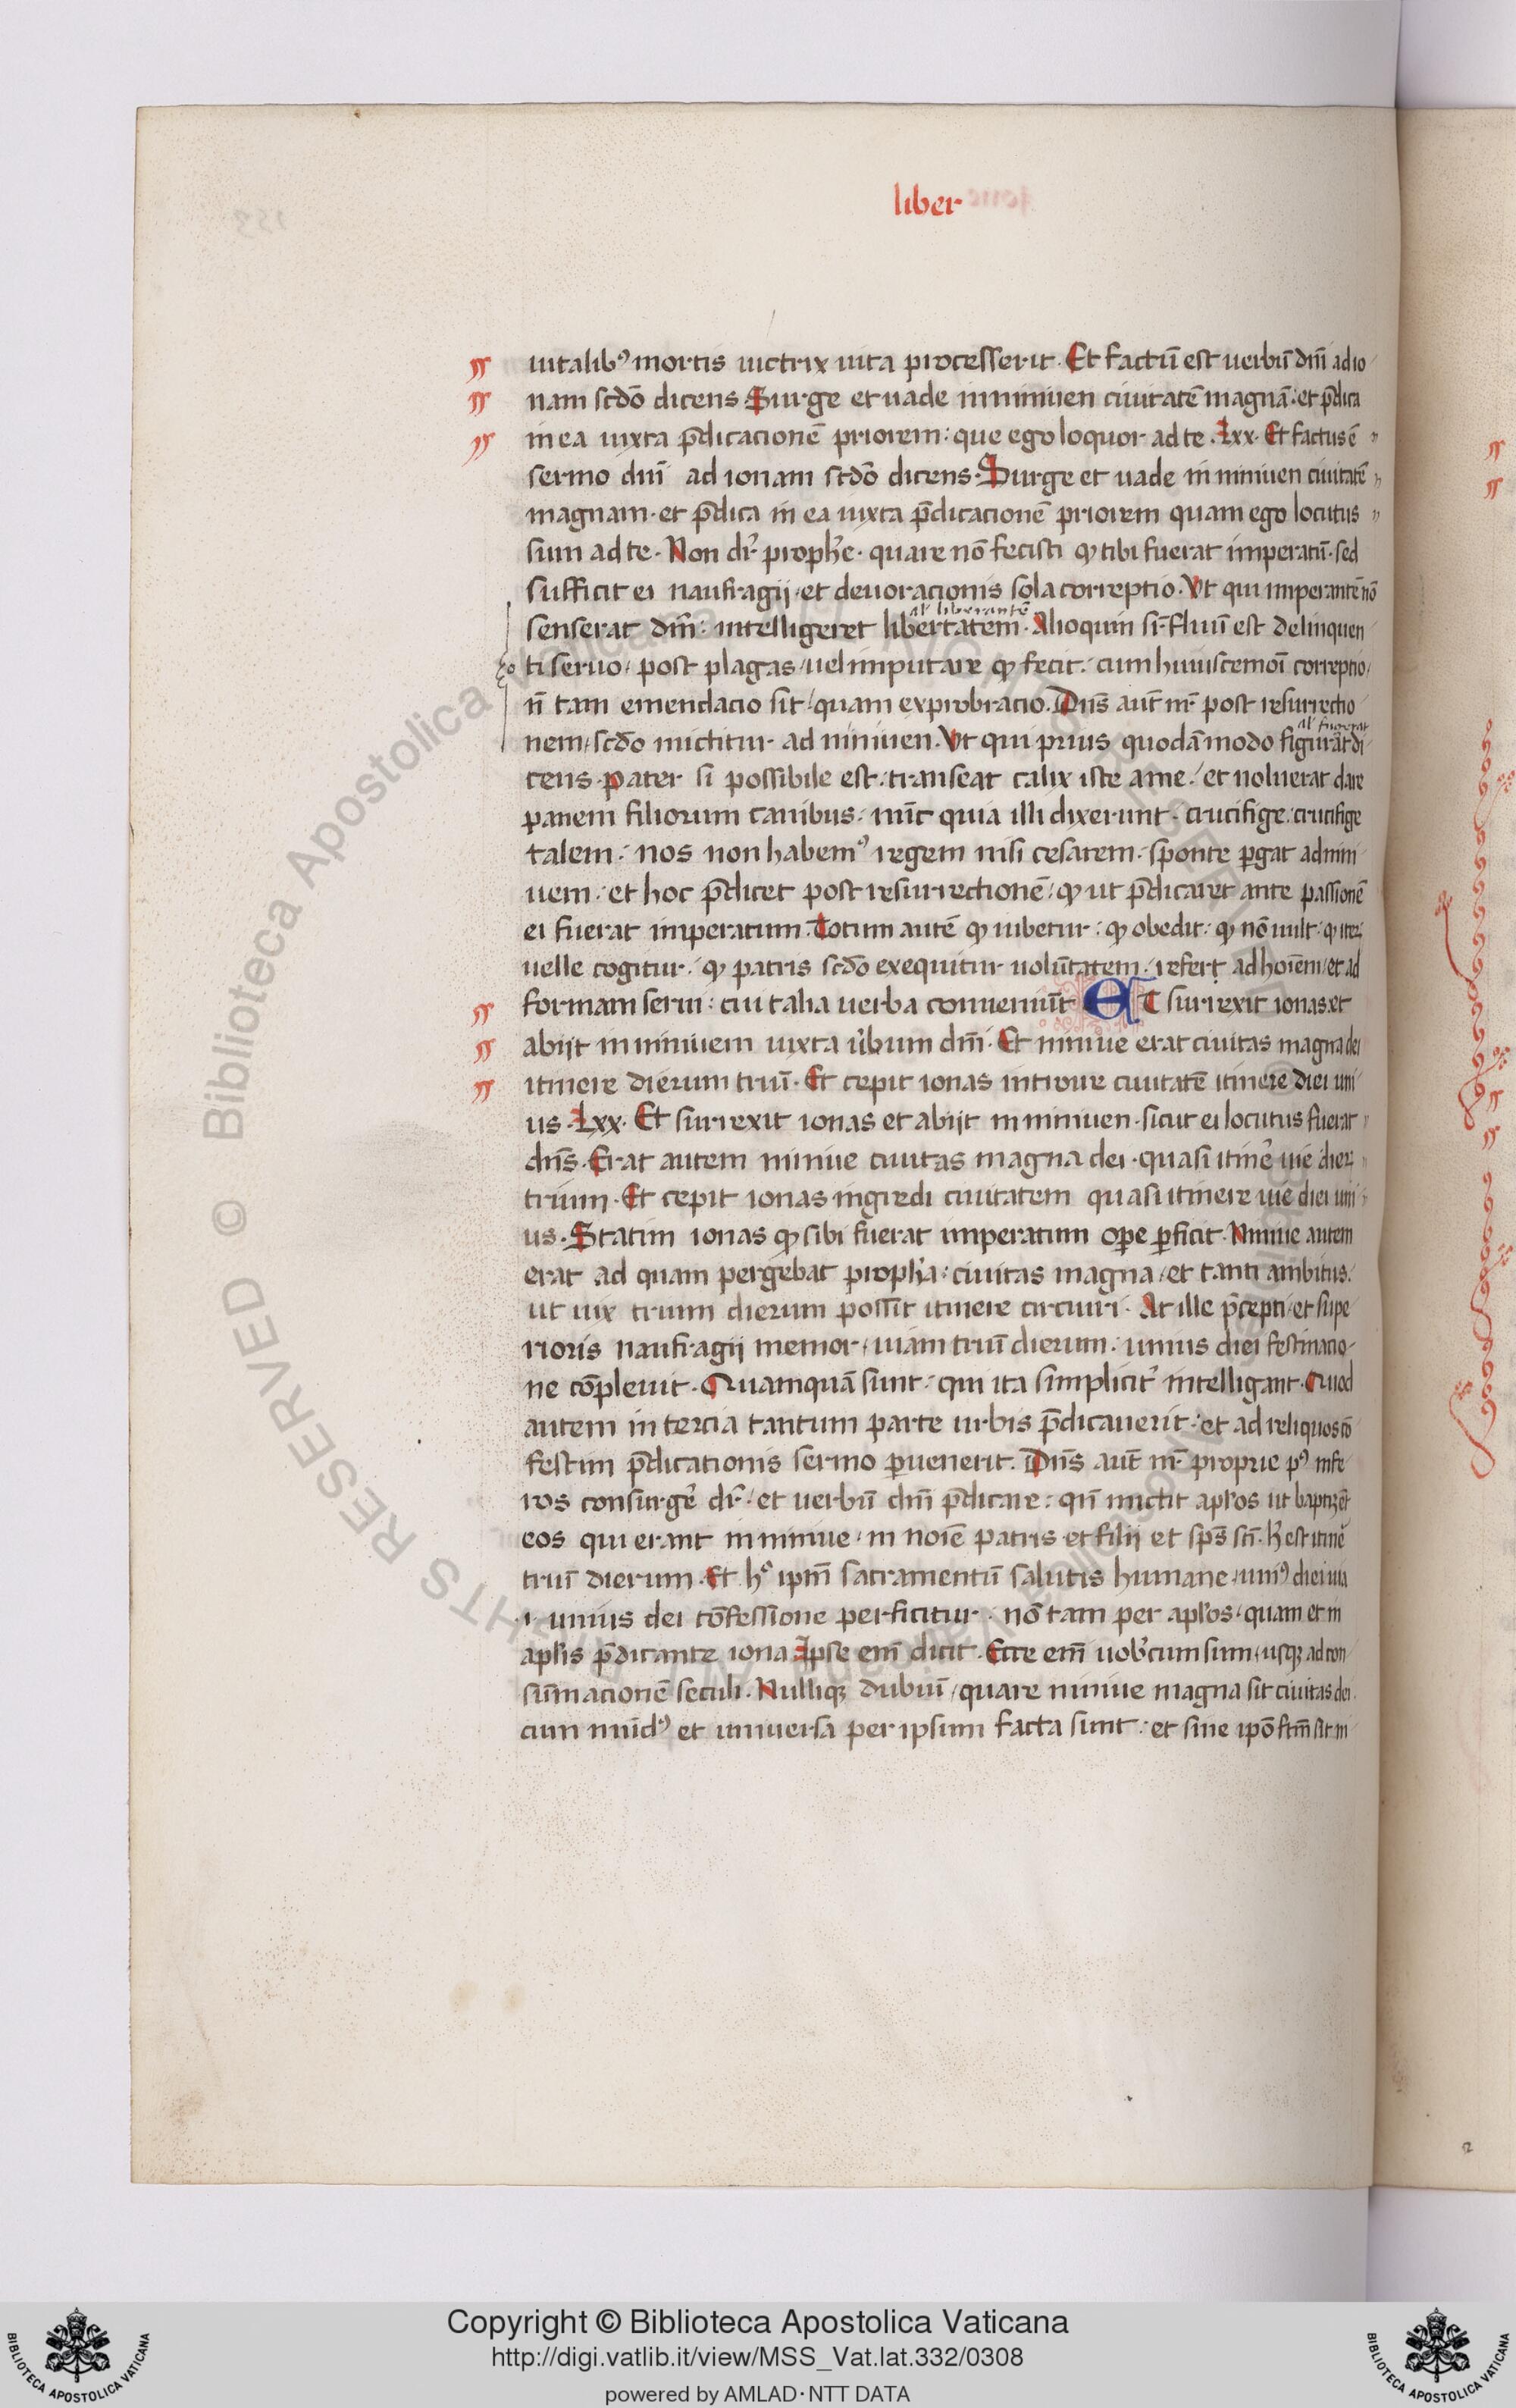 liber
uitalibꝰ mortis uictrix uita processerit. Et factū est uerbū dnī ad io
nam scdō dicens Surge et uade in niniuen ciuitatē magnā: et p̄dica
in ea iuxta p̄dicacionē priorem: que ego loquor ad te. Lxx. Et factus ē
sermo dnī ad ionam scdō dicens. Surge et uade in niniuen ciuitatē
magnam. et p̄dica in ea iuxta p̄dicacionē priorem quam ego locutus
sum ad te. Non dr̄ prophe̅. quare nō fecisti ꝙ tibi fuerat imperatū. sed
sufficit ei naufragij et deuoracionis sola correptio. Vt qui imperantē nō
al' liberantē
senserat dn̄m: intelligeret libertatem. Alioquin si-fluū est delinquen
ti seruo post plagas uel imputare ꝙ fecit. cum huiuscemōi correptio
n̄ tam emendacio sit quam exprobracio. Dn̄s aut̄ nr̄ post resurrectio
al' fugerat
nem scdō mictitur ad niniuen. Vt qui prius quodāmodo figurāt di
cens. pater si possibile est: transeat calix iste a me. et noluerat dare
panem filiorum canibus. nūc quia illi dixerunt. crucifige: crucifige
talem: nos non habemꝰ regem nisi cesarem. sponte ꝑgat ad nini
uem. et hoc p̄dicet post resurrectionē: ꝙ ut p̄dicaret ante passionē
ei fuerat imperatum. Totum autē ꝙ iubetur: ꝙ obedit: ꝙ nō uult: ꝙ iteꝝ
uelle cogitur. ꝙ patris scdō exequitur uolūtatem. refert ad hoīem et ad
formam serui: cui talia uerba conueniūt ET surrexit ionas. et
abijt in niniuem iuxta ūbum dnī. Et niniue erat ciuitas magna dei
itinere dierum triū. Et cepit ionas introire ciuitatē itinere diei uni
us. Lxx. Et surrexit ionas et abijt in niniuen. sicut ei locutus fuerat
dn̄s. Erat autem niniue ciuitas magna dei. quasi itine̅ uie dieꝝ
trium. Et cepit ionas ingredi ciuitatem quasi itinere uie diei uni
us. Statim ionas ꝙ sibi fuerat imperatum oꝑe ꝑficit. Niniue autem
erat ad quam pergebat propha̅: ciuitas magna et tanti ambitus.
ut uix trium dierum possit itinere circuiri. At ille p̄cepti et supe
rioris naufragij memor uiam triū dierum. unius diei festinacio
ne cōpleuit. Quamquā sunt: qui ita simplicit̄ intelligant. Quod
autem in tercia tantum parte urbis p̄dicauerit: et ad reliquos cō
festim p̄dicationis sermo ꝑuenerit. Dn̄s aut̄ nr̄ proprie pꝰ infe
ros consurge̅ dr̄. et uerbū dnī p̄dicare: qn̄ mictit apl'os ut baptizēt
eos qui erant in niniue in noīe patris et filij et sp̄s sc̄i. h̄ est itinē
triū dierum. Et hᵒ ipm̄ sacramentū salutis humane unīꝰ diei uia
.i. unius dei cōfessione perficitur. nō tam per apl'os quam et in
apl'is p̄dicante iona Ipse em̄ dicit. Ecce em̄ uob'cum sum usqꝫ ad con
sūmacionē seculi. Nulliqꝫ dubiū quare niniue magna sit ciuitas dei.
cum mūdꝰ et uniuersa per ipsum facta sunt: et sine ipō fcm̄ sit ni
Biblioteca Apostolica Vaticana
© Biblioteca Apostolica Vaticana
RIGHTS RESERVED
Copyright © Biblioteca Apostolica Vaticana
http://digi.vatlib.it/view/MSS_Vat.lat.332/0308
powered by AMLAD·NTT DATA
BIBLIOTECA APOSTOLICA VATICANA
BIBLIOTECA APOSTOLICA VATICANA